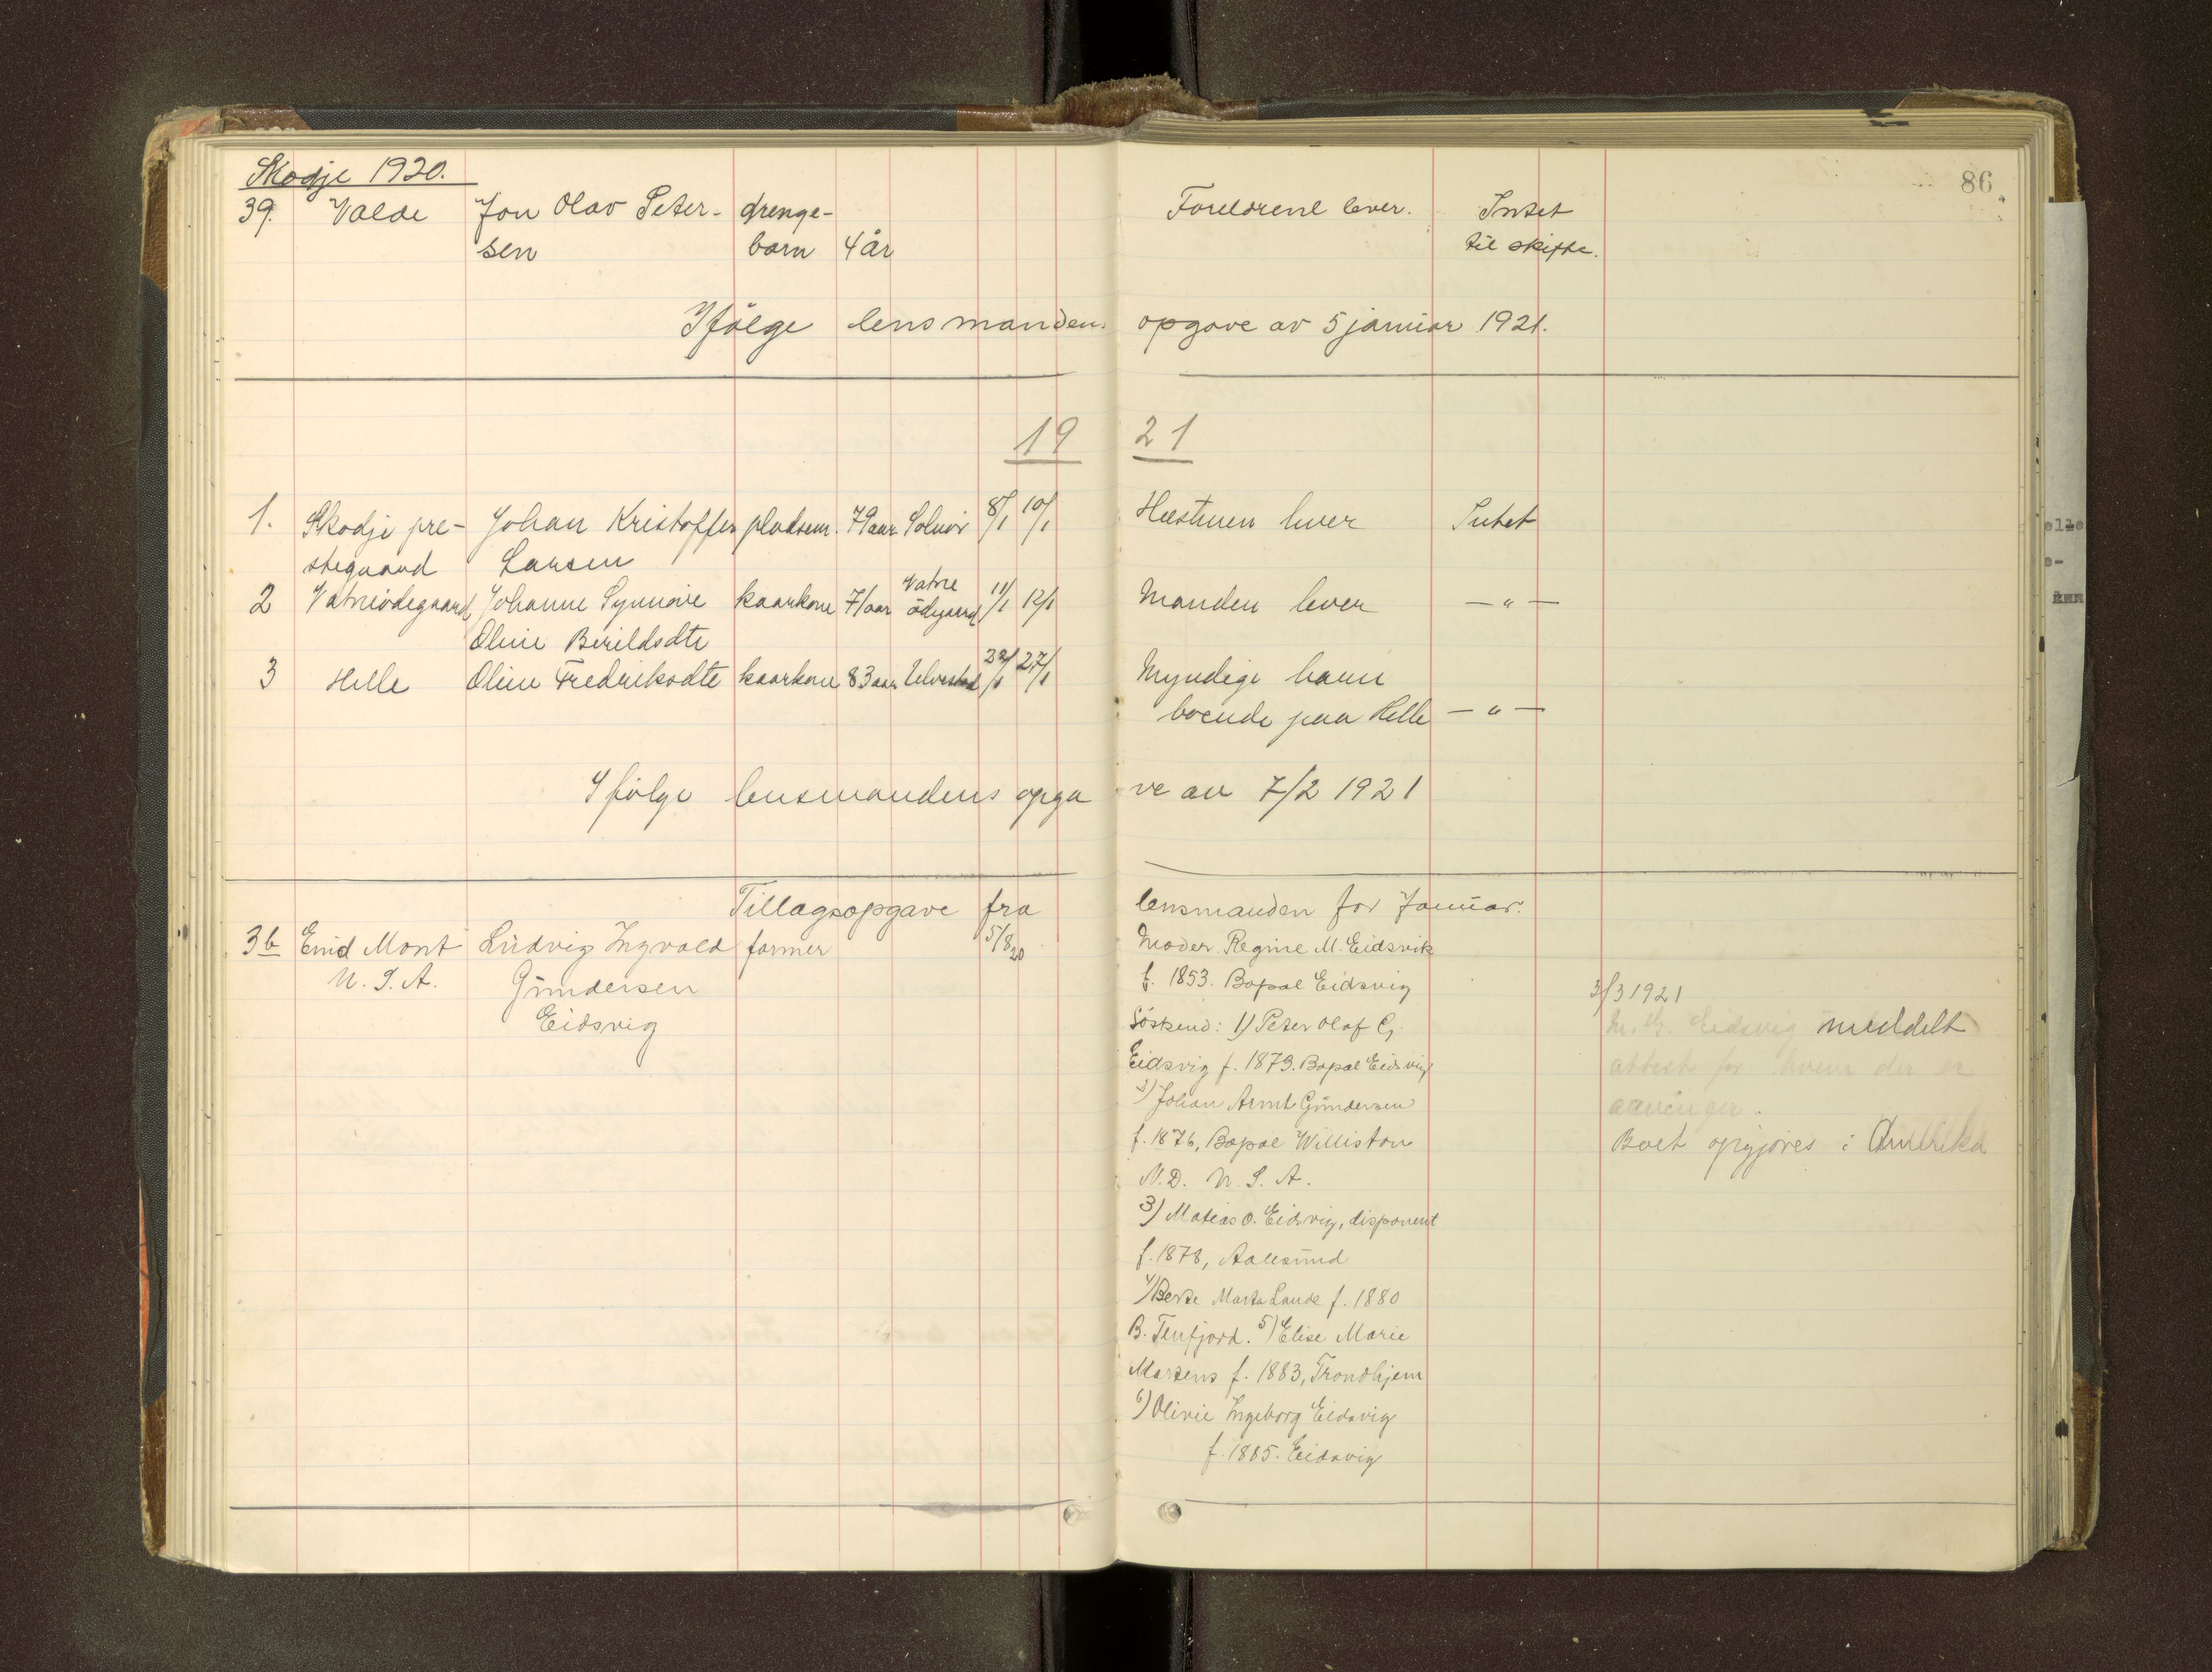 86
Skodje 1920.
39. Valde Jon Olav Peter- drenge- Foreldrene lever. Intet
sen barn 4 år til skifte.
Ifölge lensmandens opgave av 5 januar 1921.
19 21
1. Skodje pre- Johan Kristoffer pladsm. 79 aar Solnör 8/1 10/1 Hustruen lever Intet
stegaard Larsen
2 Vatneödegaard Johanne Synnöve kaarkone 71 aar Vatne ödegaard 11/1 12/1 Manden lever — " —
Oline Berildsdtr
3 Helle Oline Fredriksdtr kaarkone 83 aar 22/1 27/1 Myndige barn
boende paa Helle — " —
Ifölge lensmandens opgave av 7/2 1921
Tillagsopgave fra lensmanden for Januar.
3b Enid Mont Ludvig Ingvald farmer 5/8 20 Moder Regine M. Eidsvik
U.S.A. Gundersen f. 1853. Bopæl Eidsvig
Eidsvig
Söskend: 1) Peter Olaf G.
Eidsvig f. 1873. Bopæl Eidsvig
2) Johan Arnt Gundersen
f. 1876, Bopæl Williston
N.D. U.S.A.
3) Mateas O. Eidsvig, disponent
f. 1878, Aalesund
4) Berte Marta Lande f. 1880
B. Tenfjord. 5) Elise Marie
Martens f. 1883, Trondhjem
6) Olivie Ingeborg Eidsvig
f. 1885. Eidsvig
3/3 1921
Eidsvig meddelt
attest for hvem der er
arvinger.
Boet opgjöres i Amerika
elle
e-